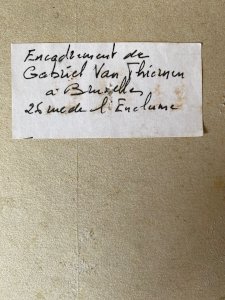 Encadrement de
Gabriel Van Thienen
à Bruxelles
26 rue de l'Enclume